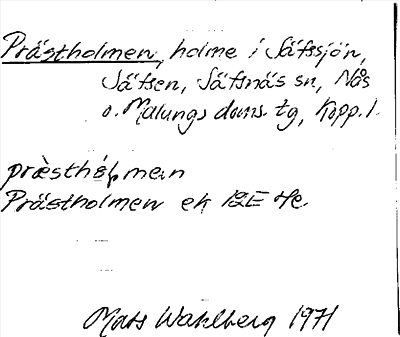 Prästholmen, holme i Säfssjön,
Säfsen, Säfsnäs sn, Nås
o. Malungs doms. tg, Kopp. l.
Prästholmen ek 12E
Mats Wahlberg 1971